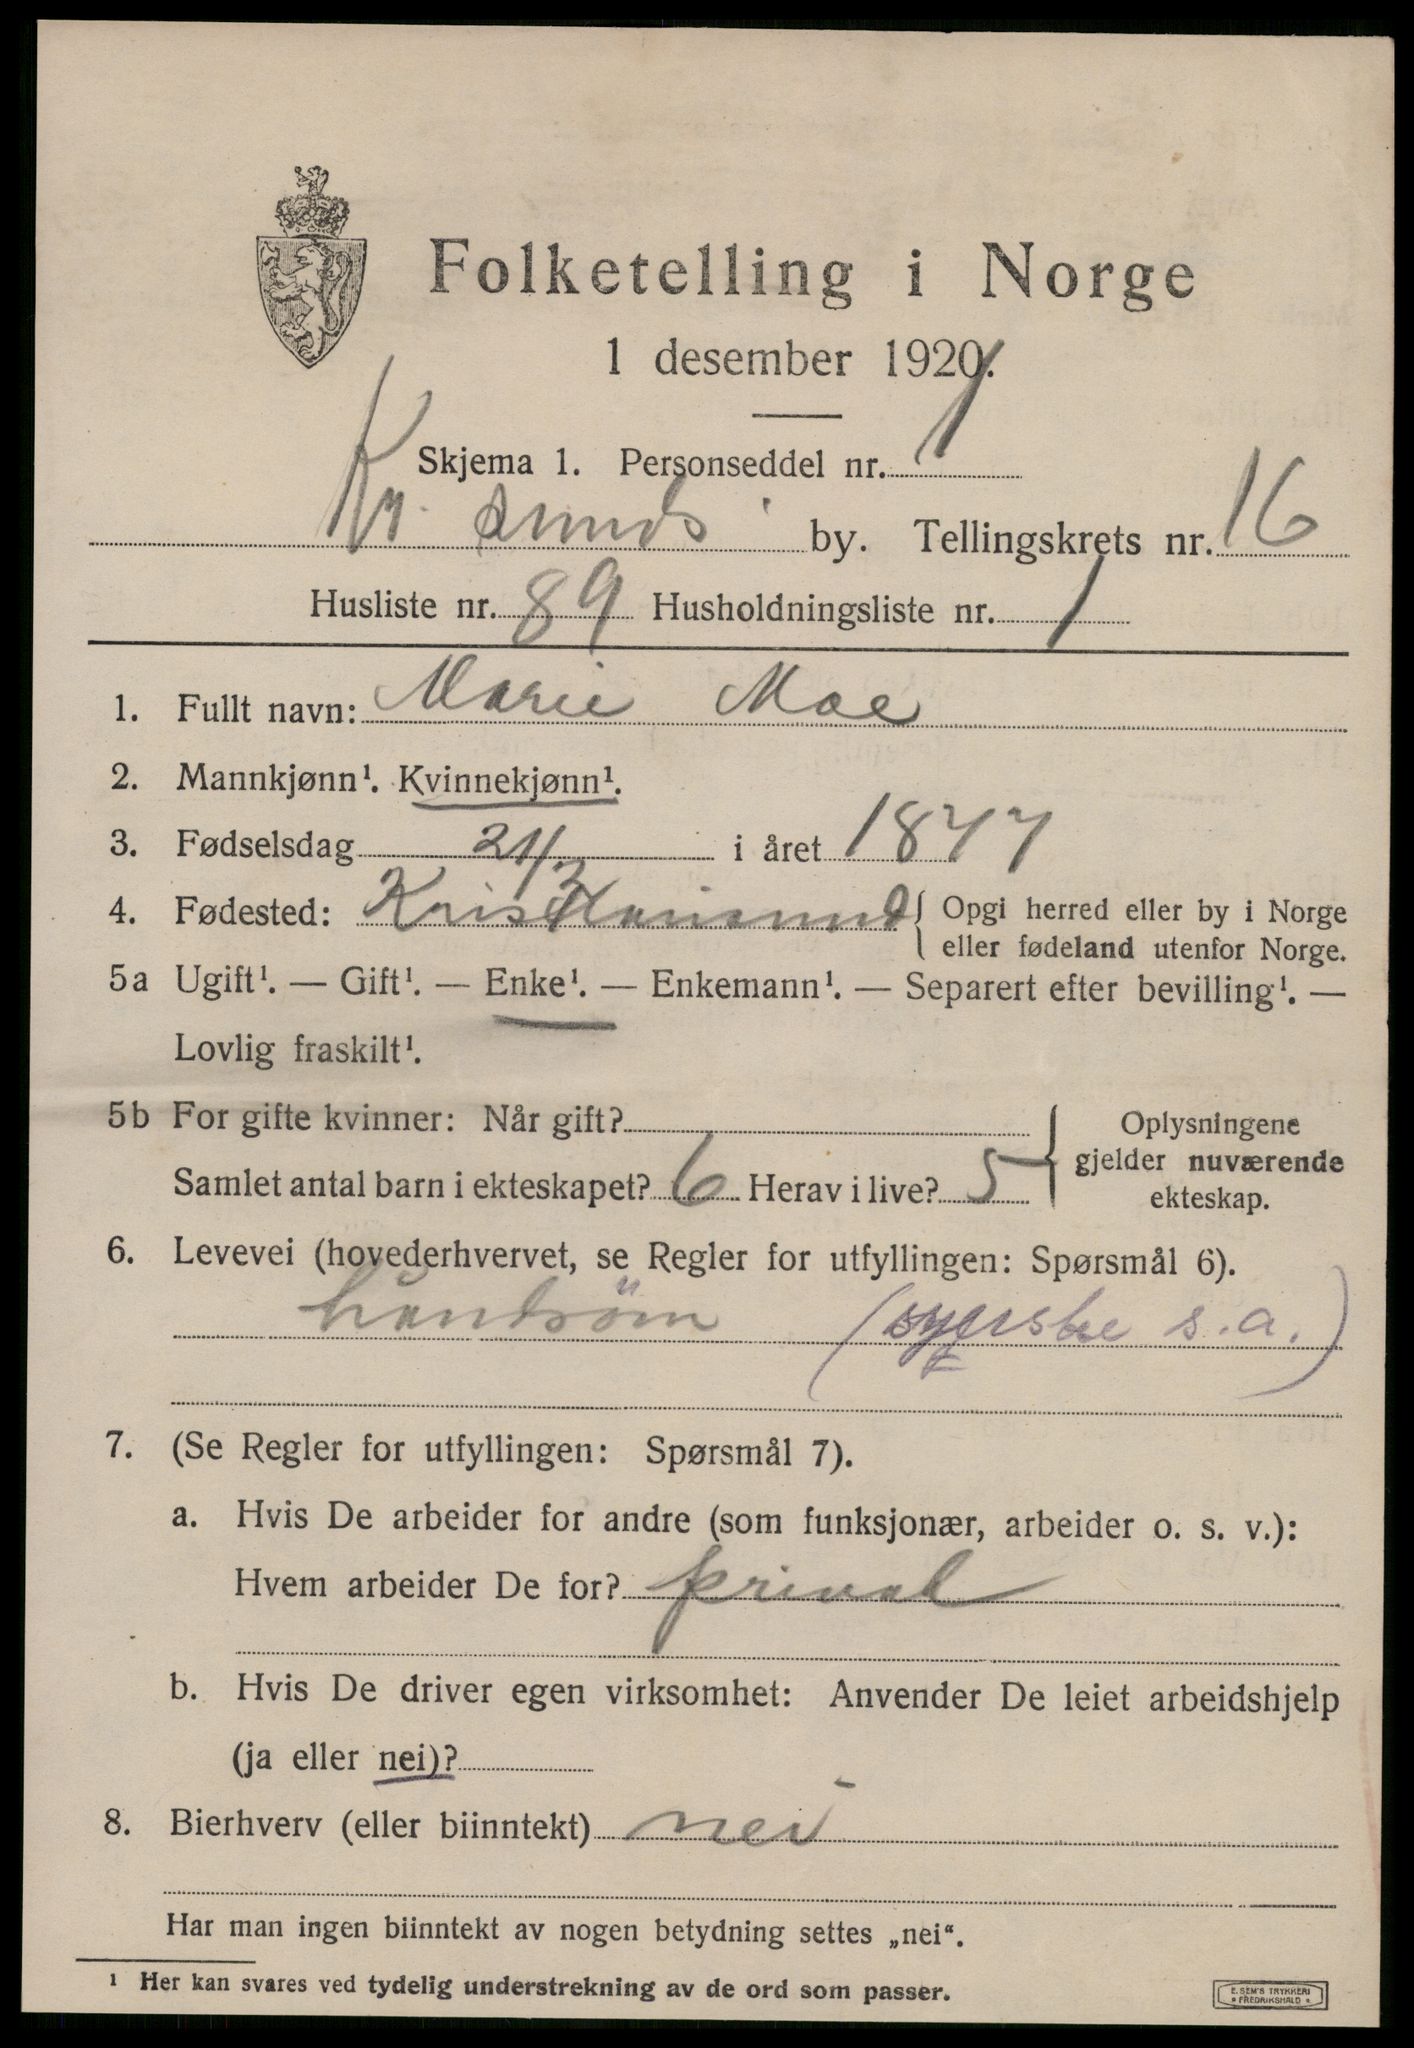 Folketelling i Norge
1 desember 1920.
Skjema 1. Personseddel nr. 1
Kr. sunds by. Tellingskrets nr. 16
Husliste nr. 89 Husholdningsliste nr. 1
1. Fullt navn: Marie Moe
2. Mannkjønn¹. Kvinnekjønn¹.
3. Fødselsdag 21/3 i året 1877
4. Fødested: Kristiansund { Opgi herred eller by i Norge
eller fødeland utenfor Norge.
5a Ugift¹. — Gift¹. — Enke¹. — Enkemann¹. — Separert efter bevilling¹. —
Lovlig fraskilt¹.
5b For gifte kvinner: Når gift?
Samlet antal barn i ekteskapet? 6 Herav i live? 5
Oplysningene
gjelder nuværende
ekteskap.
6. Levevei (hovederhvervet, se Regler for utfyllingen: Spørsmål 6).
Lintsöm (syerske s.a.)
7. (Se Regler for utfyllingen: Spørsmål 7).
a. Hvis De arbeider for andre (som funksjonær, arbeider o. s. v.):
Hvem arbeider De for? privat
b. Hvis De driver egen virksomhet: Anvender De leiet arbeidshjelp
(ja eller nei)?
8. Bierhverv (eller biinntekt) nei
Har man ingen biinntekt av nogen betydning settes „nei“.
¹ Her kan svares ved tydelig understrekning av de ord som passer.
E. SEM'S TRYKKERI
FREDRIKSHALD